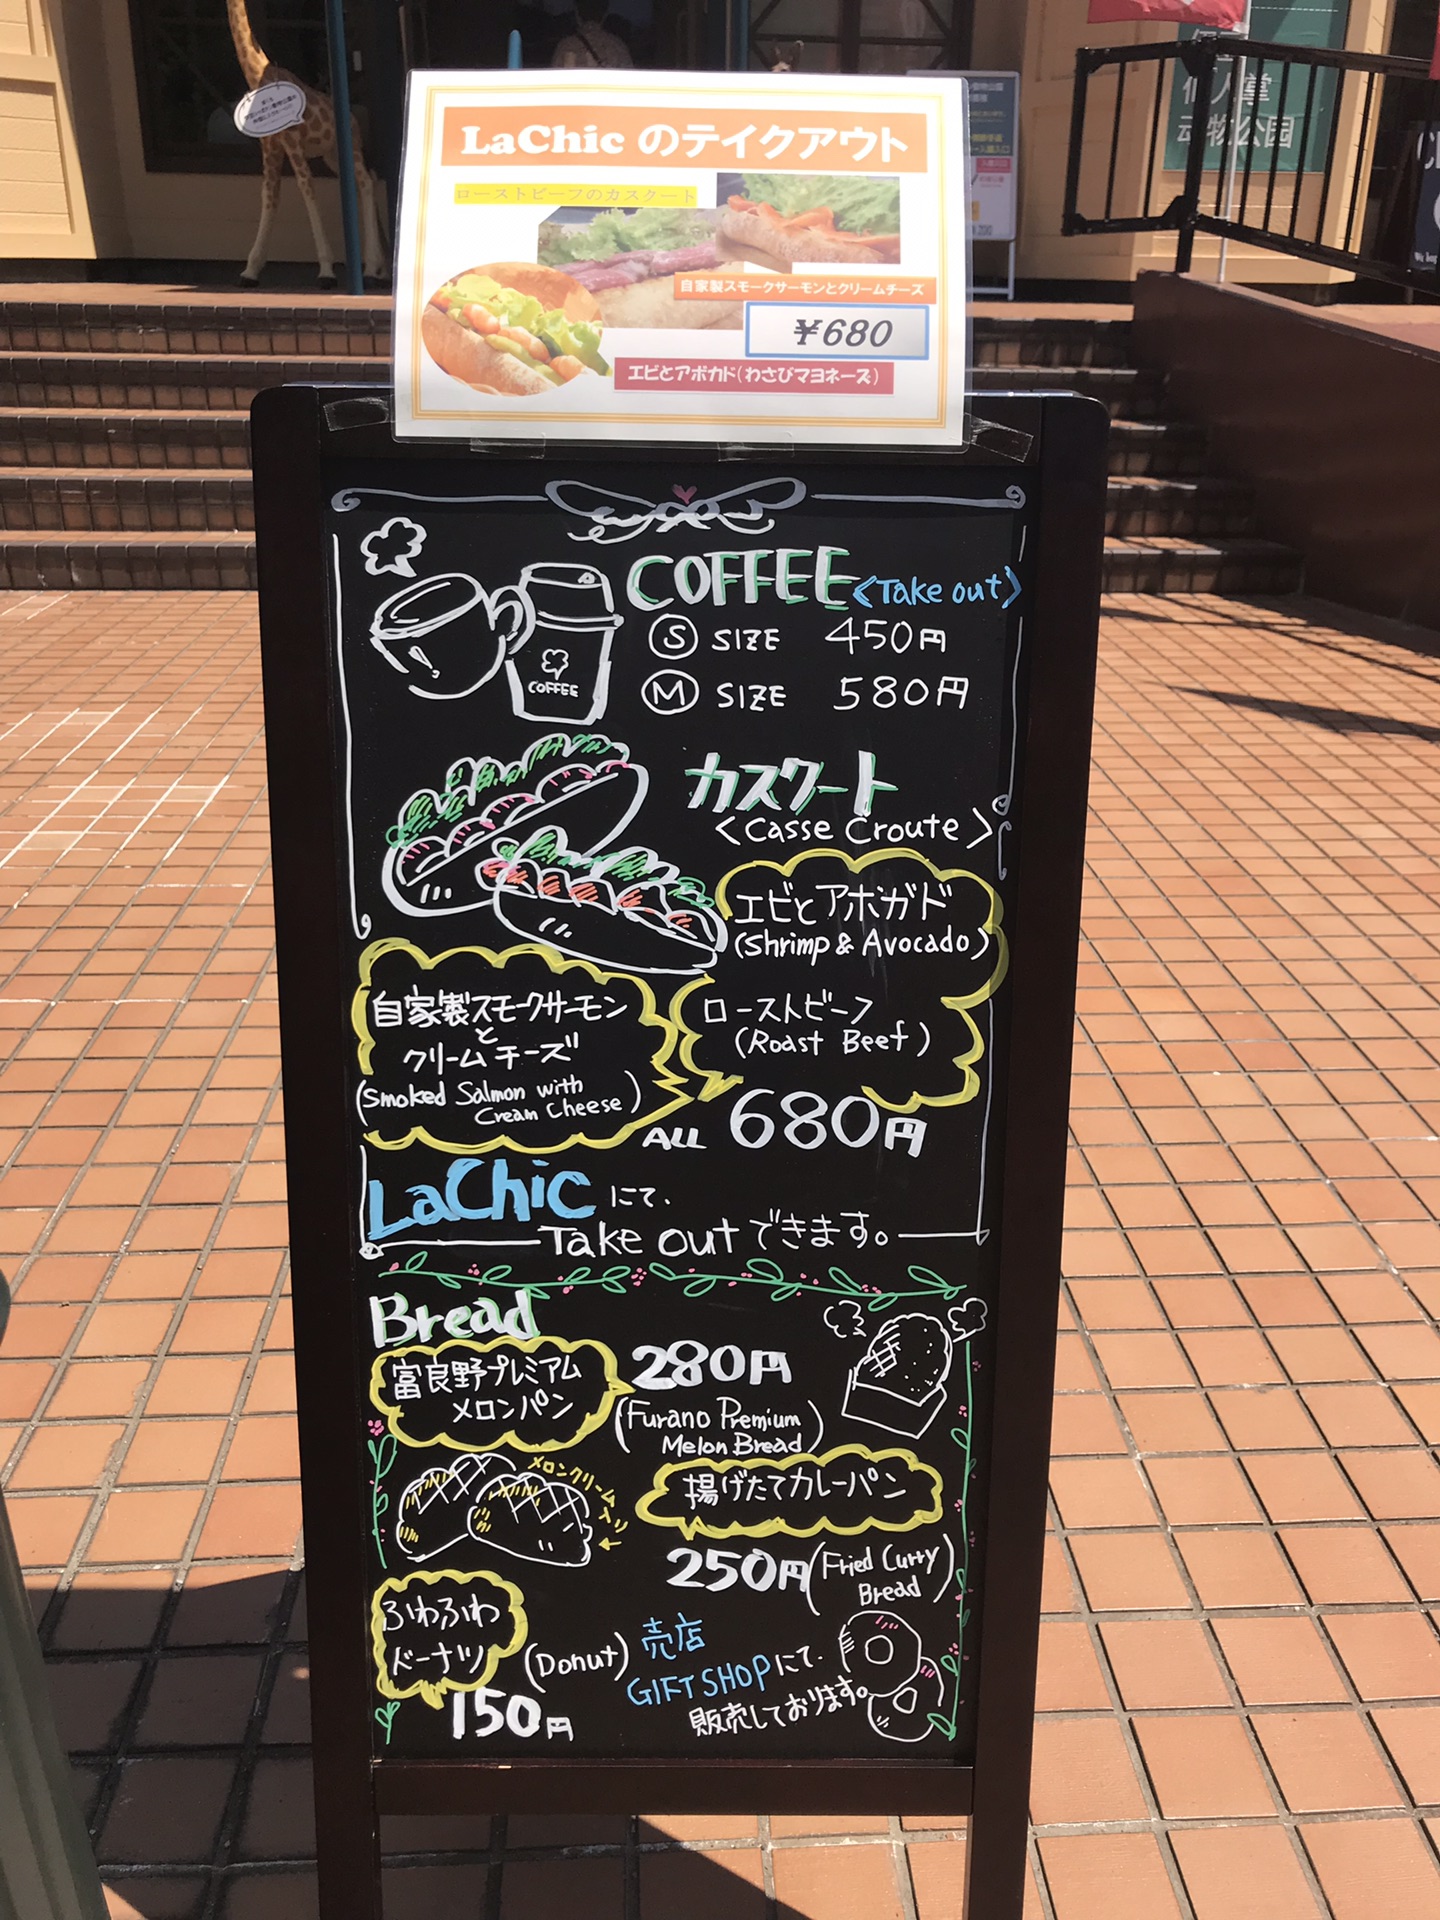 LaChic のテイクアウト
ローストビーフのカスクート
自家製スモークサーモンとクリームチーズ
¥680
エビとアボカド(わさびマヨネーズ)
仙人掌
动物公园
COFFEE <Take out>
S SIZE 450円
M SIZE 580円
COFFEE
カスクート
<Casse Croute>
エビとアボガド
(Shrimp & Avocado)
ローストビーフ
(Roast Beef)
自家製スモークサーモン
と
クリームチーズ
(Smoked Salmon with
Cream Cheese)
ALL 680円
LaChic にて、
Take out できます。
Bread
富良野プレミアム
メロンパン
280円
(Furano Premium
Melon Bread)
メロンクリーム入り
揚げたてカレーパン
250円 (Fried Curry
Bread)
ふわふわ
ドーナツ
(Donut)
150円
売店
GIFT SHOPにて、
販売しております。